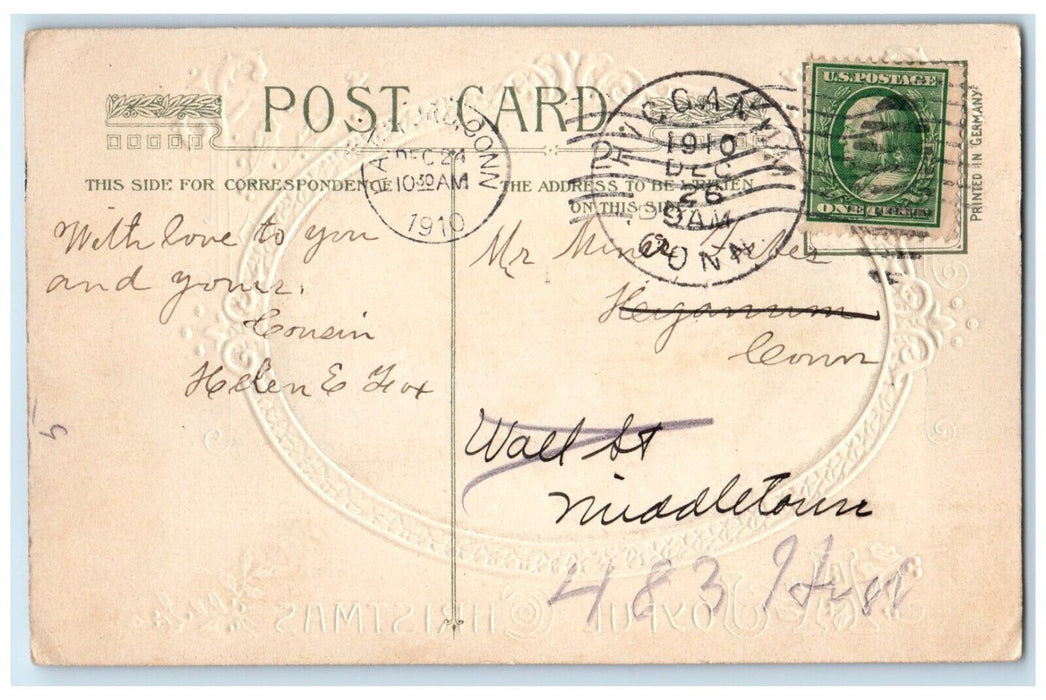 POST CARD
U.S. POSTAGE
ONE CENT
PRINTED IN GERMANY
CONN
DEC 24
10 30 AM
1910
HIGGANUM
1910
DEC
26
9AM
CONN
THIS SIDE FOR CORRESPONDENCE
THE ADDRESS TO BE WRITTEN
ON THIS SIDE
With love to you
and yours.
Cousin
Helen E Fox
Mr Miner
Heganum
Conn
Wall St
Middletown
483
JOYFUL CHRISTMAS
5